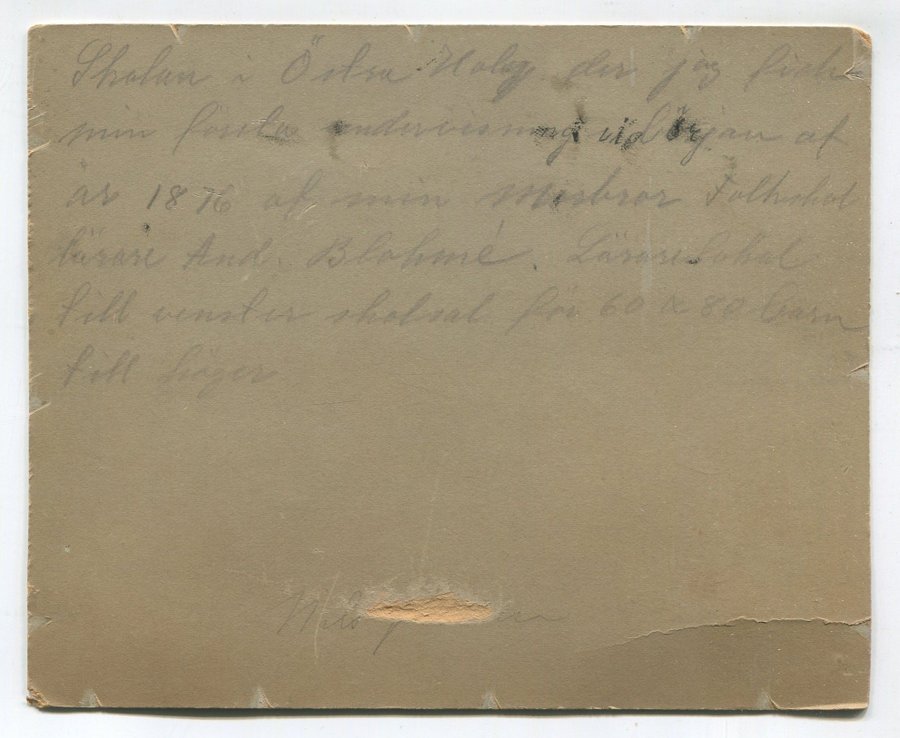 Skolan i Östra Hoby der jag fick
min första undervisning vid början af
år 1876 af min Morbror Folkskol
lärare And. Blohmé. Lärarelokal
till venster skolsal för 60 a 80 Barn
till höger